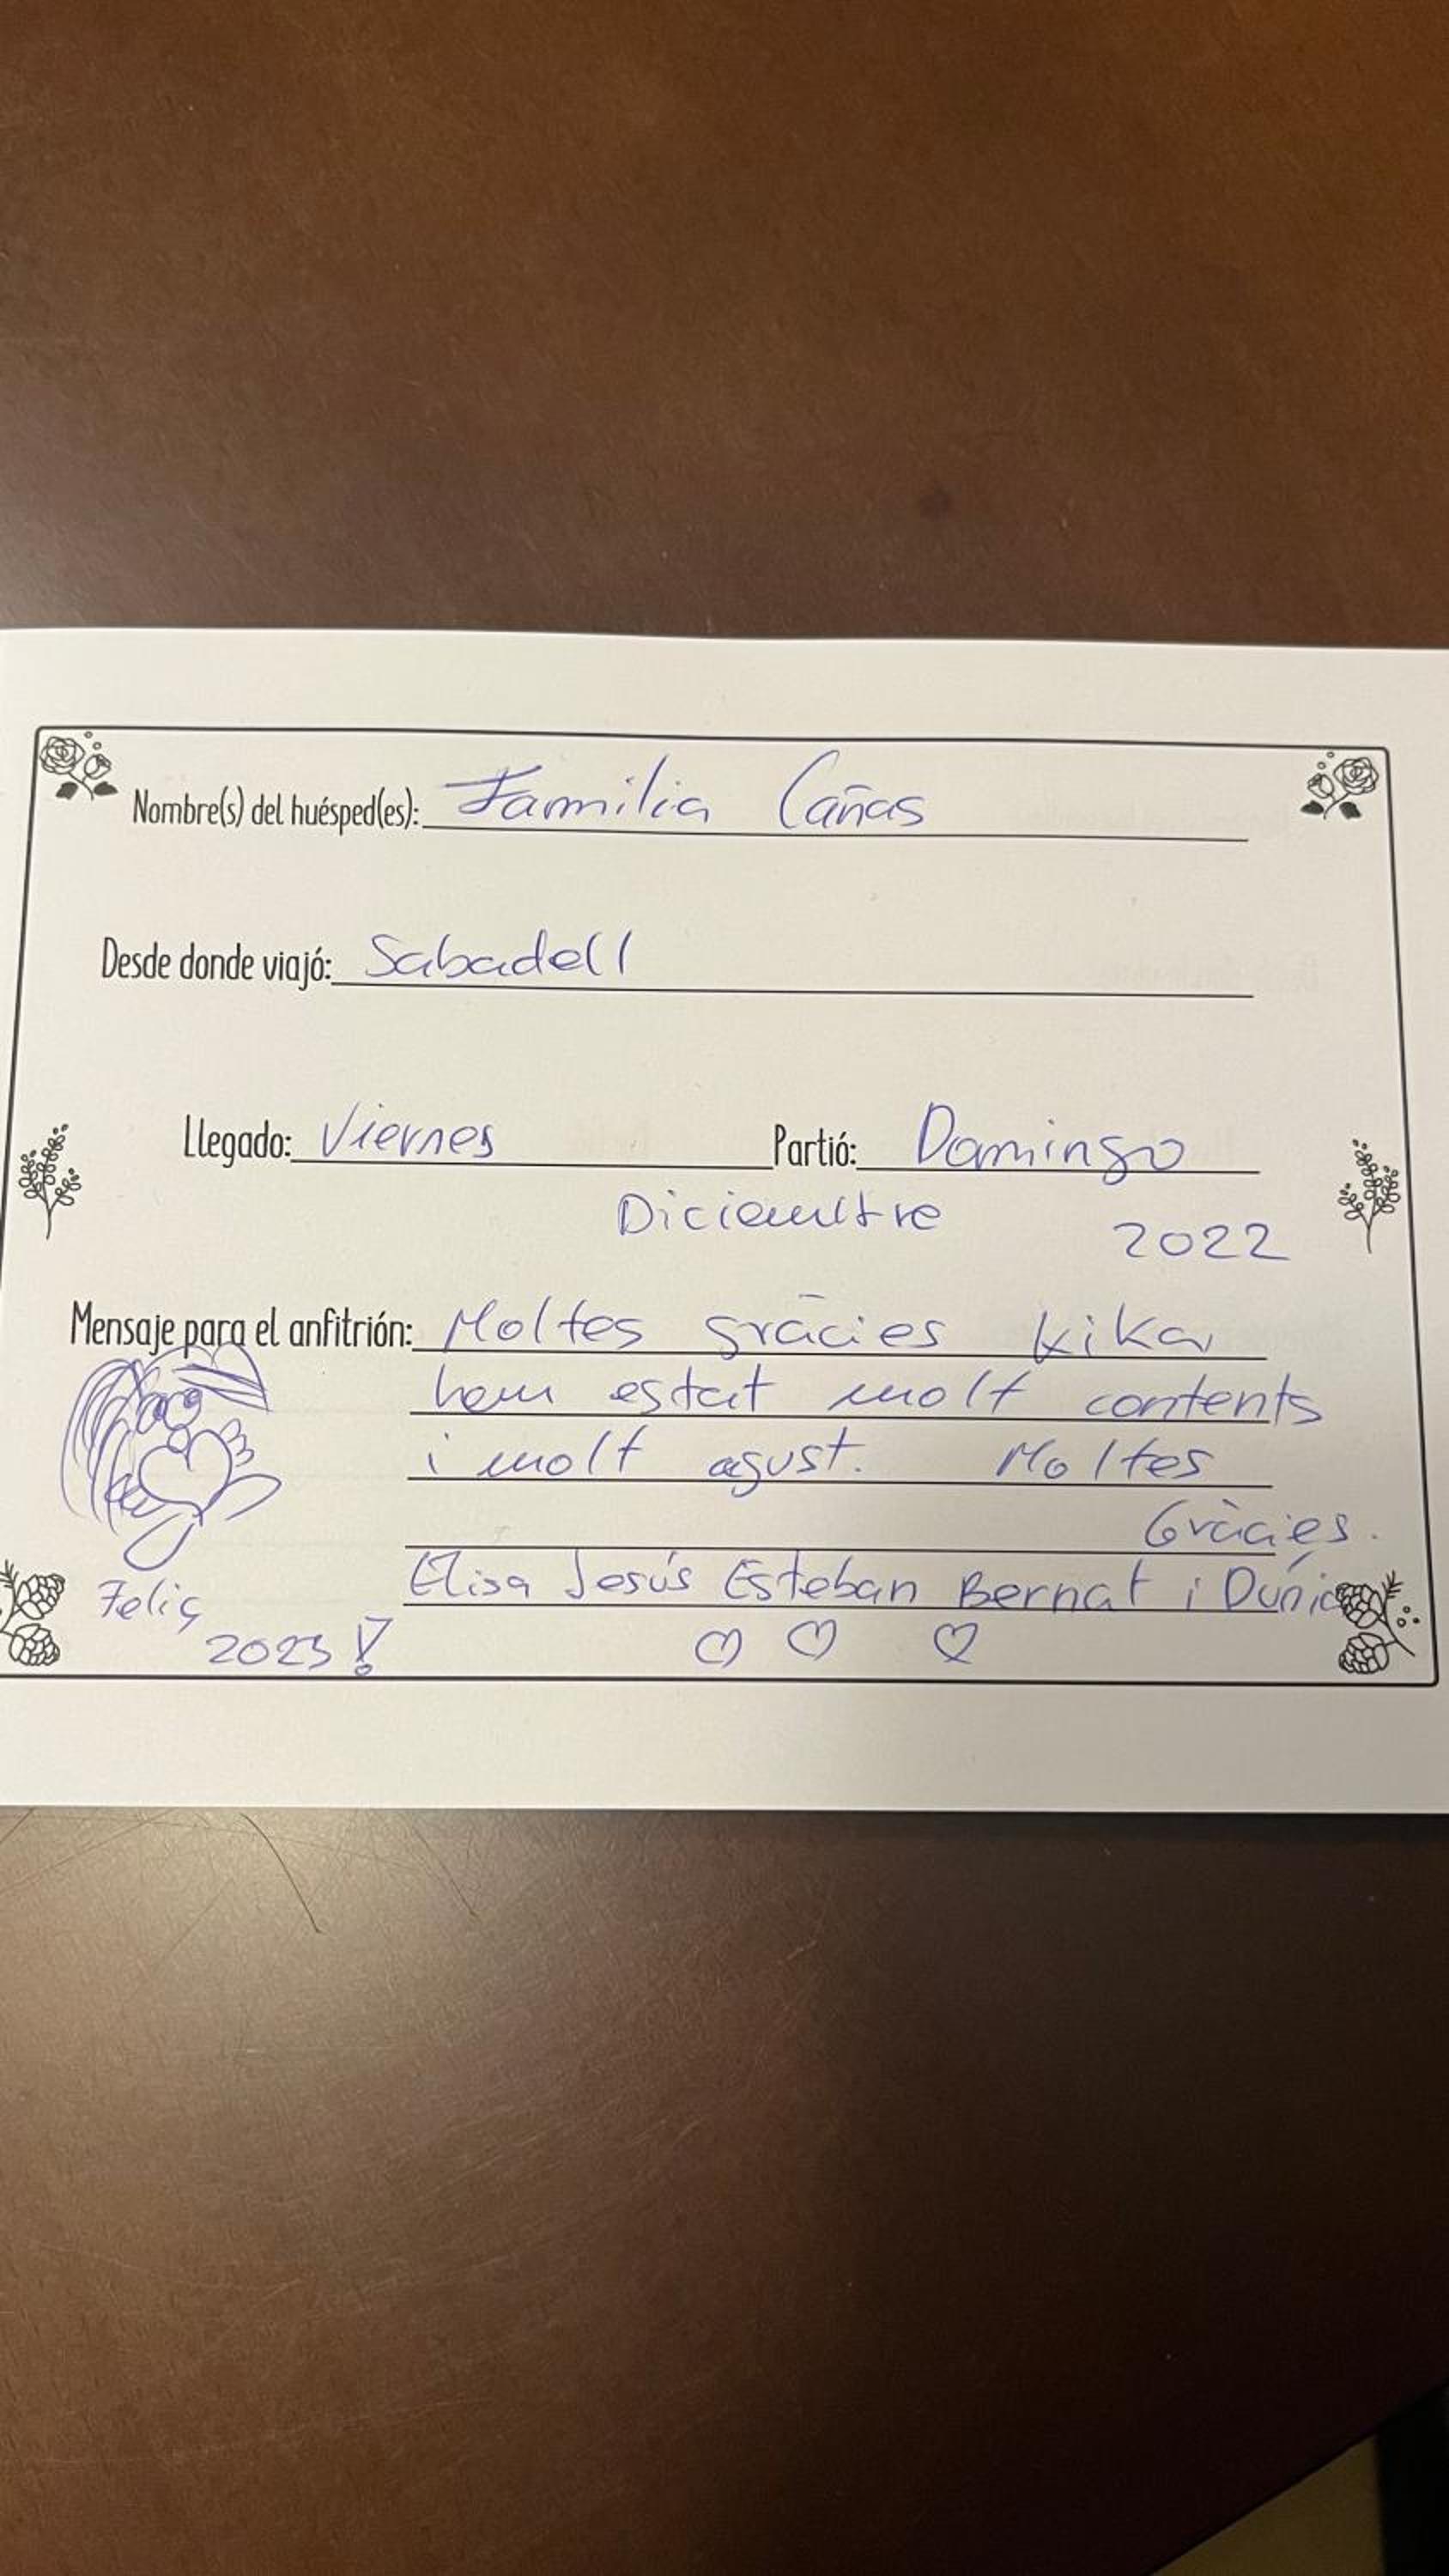 Nombre(s) del huésped(es): Familia Cañas
Desde donde viajó: Sabadell
Llegado: Viernes Partió: Domingo
Diciembre 2022
Mensaje para el anfitrión: Moltes gràcies Kika
hem estat molt contents
i molt agust. Moltes
Gràcies.
Elisa Jesús Esteban Bernat i Dúnia
Feliç
2023!